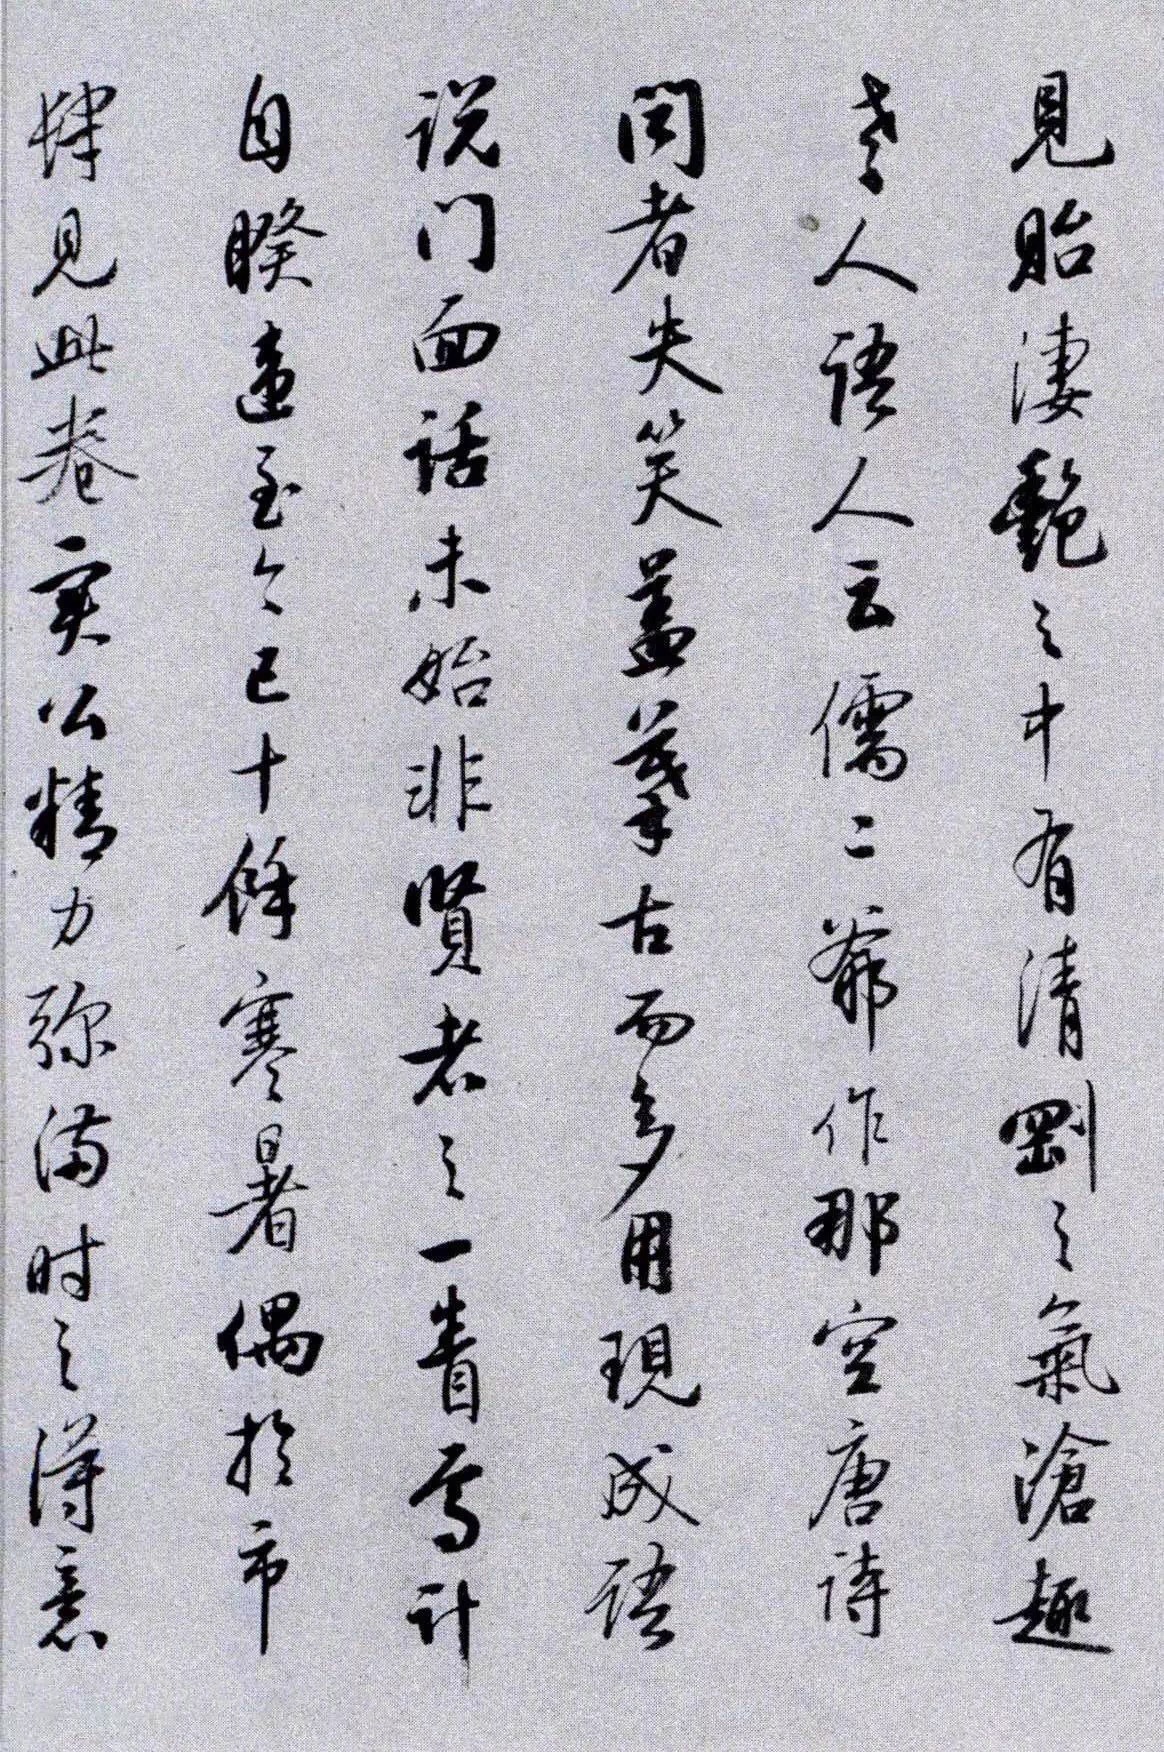 見貽淒艷之中有清剛之氣滄趣
老人語人云儒二爺作那空唐詩
闻者失笑蓋摹古而多用現成語
说门面话未始非賢者之一眚焉计
自暌違至今已十餘寒暑偶於市
肆見此卷实公精力弥滿时之得意